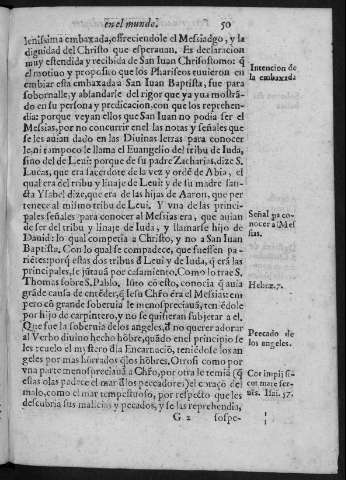 en el mundo. 50
lenissima embaxada, offreciendole el Messiadgo, y la
dignidad del Christo que esperauan. Es declaracion
muy estendida y recibida de San Iuan Chrisostomo: q̃
el motiuo y proposito que los Phariseos tuuieron en
embiar esta embaxada a San Iuan Baptista, fue para
sobornalle, y ablandarle del rigor que ya yua mostrã-
do en su persona y predicacion, con que los reprehen-
dia: porque veyan ellos que San Iuan no podia ser el
Messias, por no concurrir en el las notas y señales que
se les auian dado en las Diuinas letras para conocer
le, ni tampoco le llama el Euangelio del tribu de Iuda,
sino del de Leui: porque de su padre Zacharias, dize S.
Lucas, que era sacerdote de la vez y ordẽ de Abia, el
qual era del tribu y linaje de Leui: y de su madre san-
cta Ysabel dize, que era de las hijas de Aaron, que per
tenece al mismo tribu de Leui. Y vna de las princi-
pales señales para conocer al Messias era, que auian
de ser del tribu y linaje de Iuda, y llamarse hijo de
Dauid: lo qual competia a Christo, y no a San Iuan
Baptista. Con lo qual se compadece, que fuessen pa-
riẽtes: porq̃ estas dos tribus d̃ Leui y de Iuda, q̃ erã las
principales, se jũtauã por casamiento. Como lo trae S.
Thomas sobre S. Pablo,
cõ esto, conocia q̃ auia
grãde causa de entẽder, q̃ Iesu Chr̃o era el Messias: em
pero cõ grande soberuia le menospreciauã, teniẽdole
por hijo de carpintero, y no se quisieran subjetar a el.
Que fue la soberuia de los angeles, d̃ no querer adorar
al Verbo diuino hecho hõbre, quãdo en el principio se
les reuelo el mysterio d̃ la Encarnaciõ, teniẽdose los an
geles por mas hõrrados q̃ los hõbres. Otrosi como por
vna parte menospreciauã a Chr̃o, por otra le temiã (q̃
estas olas padece el mar d̃ los peccadores) el coraçõ del
malo, como el mar tempestuoso, por respecto que les
descubria sus malicias y pecados, y se las reprehendia,
G 2 sospe-
Intencion de
la embaxada
Señal pa co-
nocer a Mes
sias.
Hebr. 7.
Precado de
los angeles.
Cor impij si-
cut mare fer-
uẽs. Isai. 57.